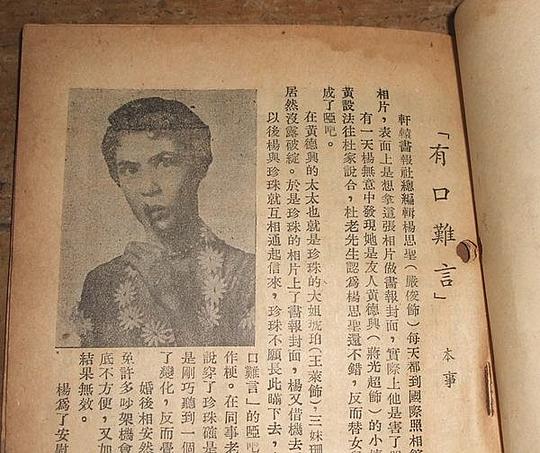 「有口難言」
本事
軒轅書報社總編輯楊思聖（嚴俊飾）每天都到國際照相館
相片，表面上是想拿這張相片做書報封面，實際上他是害了單
有一天楊無意中發現她是友人黃德興（蔣光超飾）的小姨
黃設法往杜家說合，杜老先生認爲楊思聖還不錯，反而替女兒
成了啞吧。
在黃德興的太太也就是珍珠的大姐琥珀（王萊飾），三妹珊
居然沒露破綻。於是珍珠的相片上了書報封面，楊又借機去
以後楊與珍珠就互相通起信來，珍珠不願長此瞞下去，
口難言」的啞吧
作梗。在同事老
說穿了珍珠確是
是剛巧聽到一個
了變化，反而覺
婚後相安然
免許多吵架機會
底不方便，又加
結果無效。
楊爲了安慰